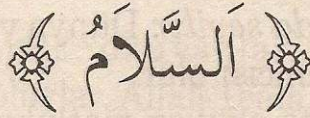 ﴿ اَلسَّلاَمُ ﴾